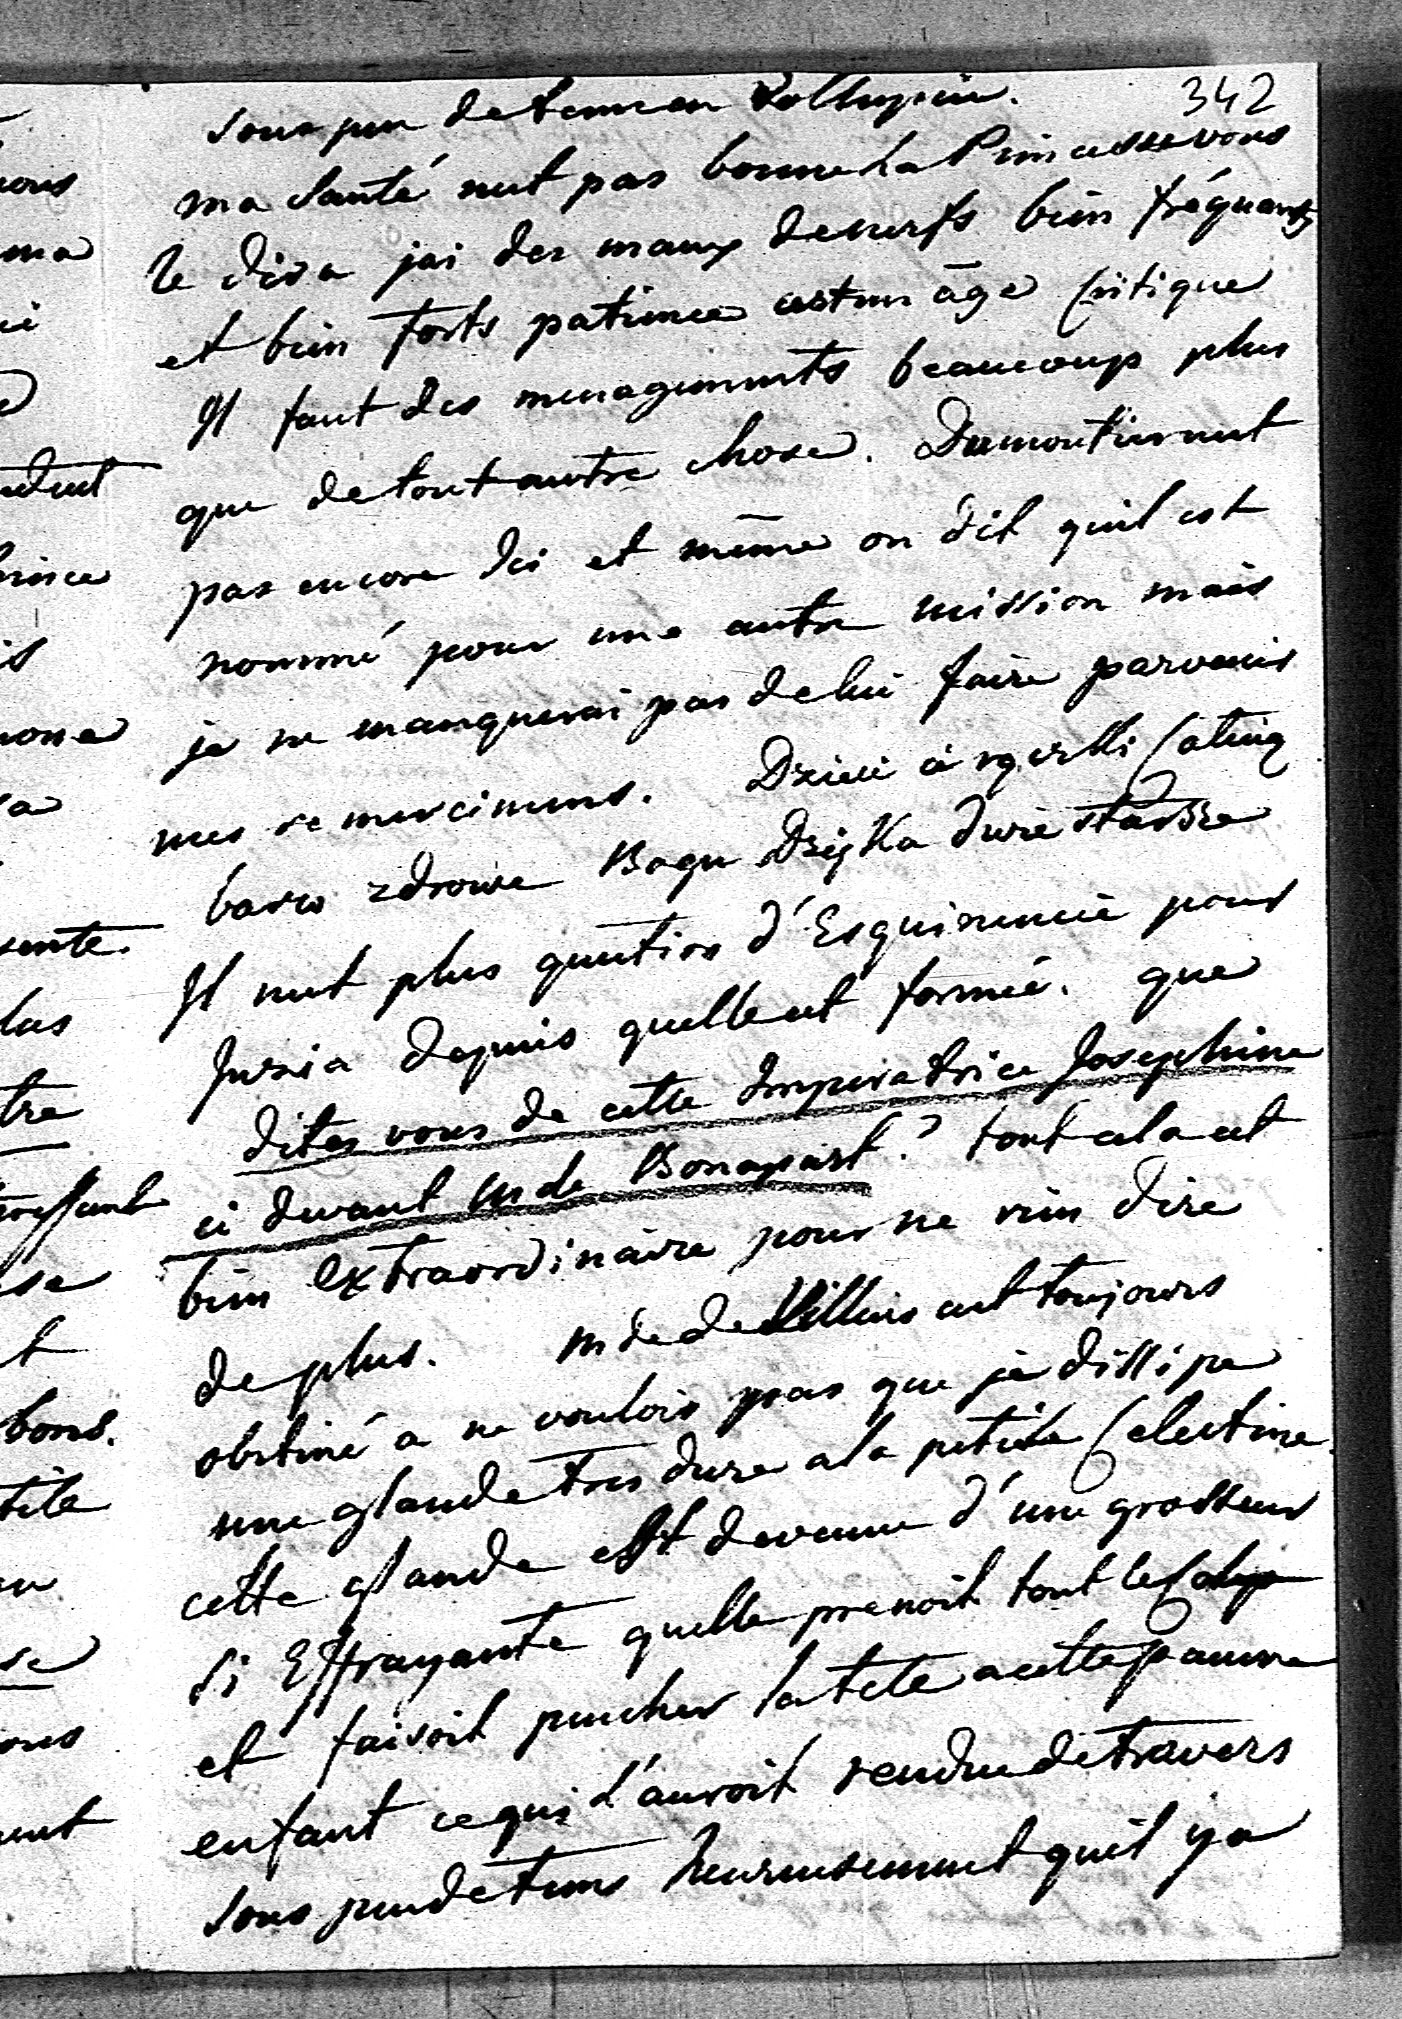 342
sous peu de tems en
ma santé nest pas bonne La Princesse vous
le dira jai des maux de nerfs bien fréquants
et bien forts patience cest un âge Critique
Il faut des menagements beaucoup plus
que de tout autre chose. Dumoutier nest
pas encore Ici et même on dit quil est
nommé pour une autre mission mais
je ne manquerai pas de lui faire parvenir
mes remerciemens. Dzieci
barzo zdrowe Bogu Dzięka dwie starsze
Il nest plus question d'Esquinencie pour
Juzia depuis quelle est formée. que
dites vous de cette Imperatrice Josephine
ci devant Mde Bonapart? tout cela est
bien extraordinaire pour ne rien dire
de plus. Mde de Villers cest toujours
obstiné a ne vouloir pas que je dissipe
une glande tres dure a la petite Celestine.
cette glande est devenue d'une grosseur
si Effrayante quelle prenoit tout le
et faisoit pencher la tete a cette pauvre
enfant ce qui l'auroit rendue de travers
sous peu de tems heureusement quil y a